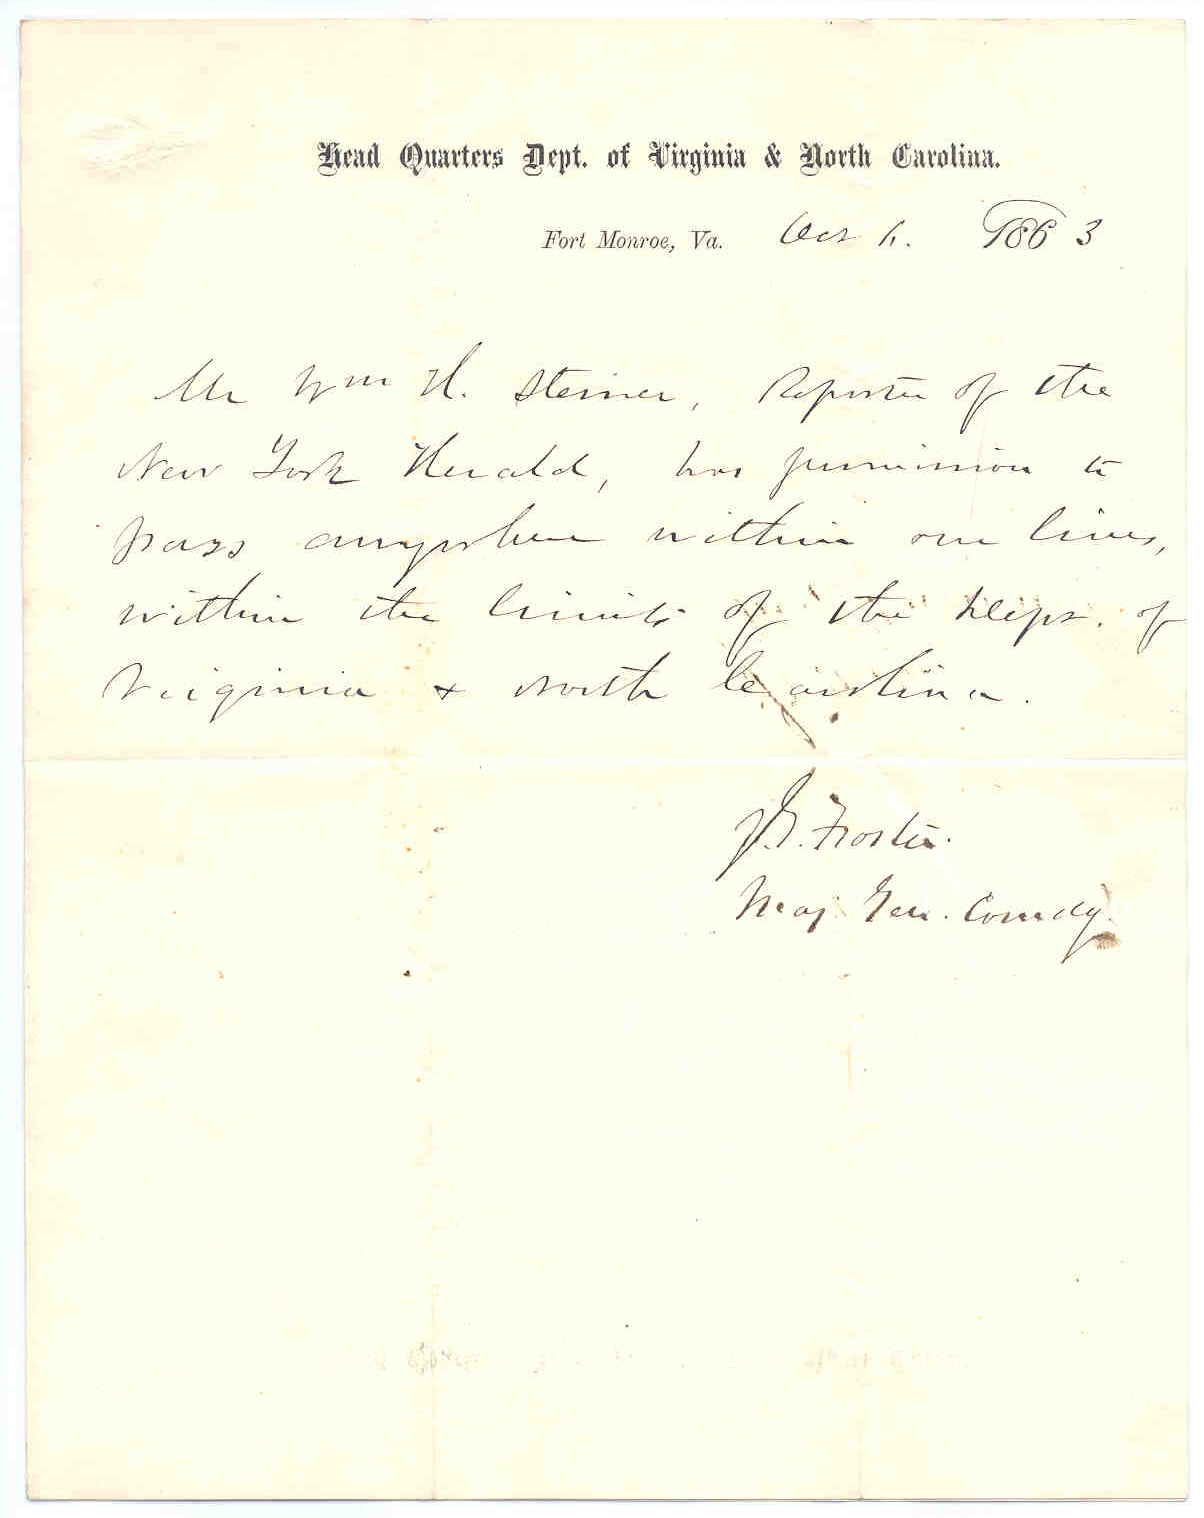 Head Quarters Dept. of Virginia & North Carolina.
Fort Monroe, Va. Oct 6. 1863
Mr Wm H. Steiner, Reporter of the
New York Herald, has permission to
pass anywhere within our lines,
within the limits of the Dept. of
Virginia & North Carolina.
J.G. Foster.
Maj. Gen. Comdg.